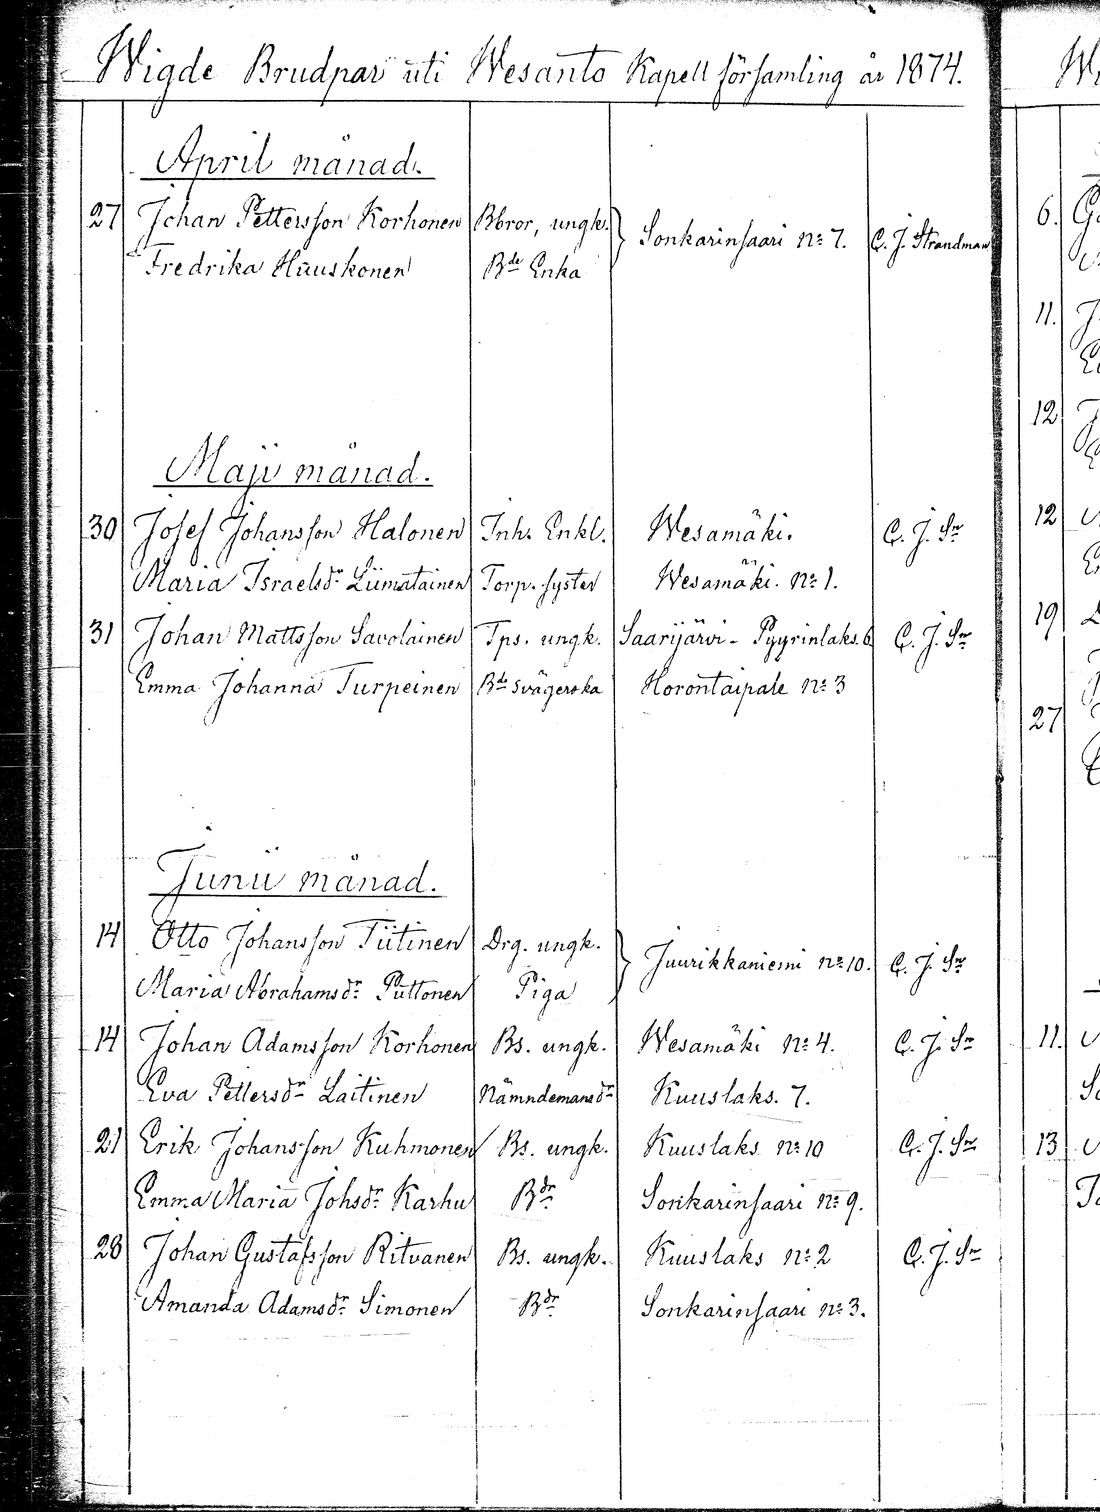 Wigde Brudpar uti Wesanto Kapell församling år 1874.
April månad.
27 Johan Pettersson Korhonen Bbror, ungk. } Sonkarinsaari No 7. C. J. Strandman
Fredrika Huuskonen Bde Enka
Maji månad.
30 Josef Johansson Halonen Inh. Enkl. Wesamäki. C. J. Sn
Maria Israelsdr Liimatainen Torp. syster Wesamäki. No 1.
31 Johan Mattsson Savolainen Tps. ungk. Saarijärvi - Pyyrinlaks. 6 C. J. Sn
Emma Johanna Turpeinen Bde Svägerska Horontaipale No 3
Junii månad.
14 Otto Johansson Tiitinen Drg. ungk. } Juurikkaniemi No 10. C. J. Sn
Maria Abrahamsdr Puttonen Piga
14 Johan Adamsson Korhonen Bs. ungk. Wesamäki No 4. C. J. Sn
Eva Pettersdr Laitinen Nämndemansdr Kuuslaks. 7.
21 Erik Johansson Kuhmonen Bs. ungk. Kuuslaks No 10 C. J. Sn
Emma Maria Johsdr Karhu Bdr Sonkarinsaari No 9.
28 Johan Gustafsson Ritvanen Bs. ungk. Kuuslaks No 2 C. J. Sn
Amanda Adamsdr Simonen Bdr Sonkarinsaari No 3.
6.
11.
12
12
19
27
11.
13